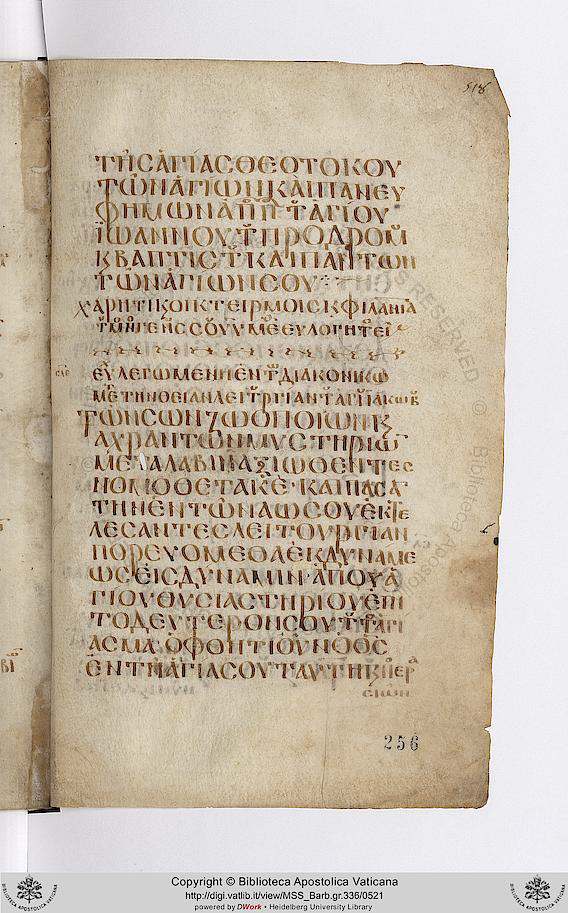 518
ΤΗΣ ΑΓΙΑΣ ΘΕΟΤΟΚΟΥ
ΤΩΝ ΑΓΙΩΝ ΚΑΙ ΠΑΝΕΥ
ΦΗΜΩΝ ΑΠΠ Τ ΑΓΙΟΥ
ΙΩΑΝΝΟΥ Τ ΠΡΟΔΡΟΜ
Κ ΒΑΠΤΙΣΤ ΚΑΙ ΠΑΝΤΩΝ
ΤΩΝ ΑΓΙΩΝ ΣΟΥ
ΧΑΡΗΤΙ Κ ΟΙΚΤΕΙΡΜΟΙΣ Κ ΦΙΛΑΝΙΑ
ΕΥΛΟΓΗΤ ΕΙ
ΕΥ ΛΕΓΩΜΕΝΗ ΕΝ Τ ΔΙΑΚΟΝΙΚΩ
ΜΕΤ ΤΗΝ ΘΕΙΑΝ ΛΕΙΤΡΓΙΑΝ Τ ΑΓΙ ΙΑΚΩΒ
ΤΩΝ ΣΩΝ ΖΩΟΠΟΙΩΝ Κ
ΑΧΡΑΝΤΩΝ ΜΥΣΤΗΡΙΩ
ΜΕΤΑΛΑΒΙΝ ΑΞΙΩΘΕΝΤΕΣ
ΝΟΜΟΘΕΤΑ ΚΕ ΚΑΙ ΠΑΣΑ
ΤΗΝ ΕΝΤΩΝΑΩ ΣΟΥ ΕΚΤΕ
ΛΕΣΑΝΤΕΣ ΛΕΙΤΟΥΡΓΙΑΝ
ΠΟΡΕΥΟΜΕΘΑ ΕΚ ΔΥΝΑΜΕ
ΩΣ ΕΙΣ ΔΥΝΑΜΙΝ ΑΠΟ Υ Α
ΓΙΟΥ ΘΥΣΙΑΣΤΗΡΙΟΥ ΕΠΙ
ΤΟ ΔΕΥΤΕΡΟΝ ΣΟΥ Τ ΑΓΙ
ΑΣΜΑ ΟΦΘΗΤΙ ΟΥΝ Ο ΘΣ
ΕΝ ΤΗ ΑΓΙΑ ΣΟΥ ΤΑΥΤΗ Κ ΥΠΕΡ
256
Copyright © Biblioteca Apostolica Vaticana
http://digi.vatlib.it/view/MSS_Barb.gr.336/0521
powered by DWork • Heidelberg University Library